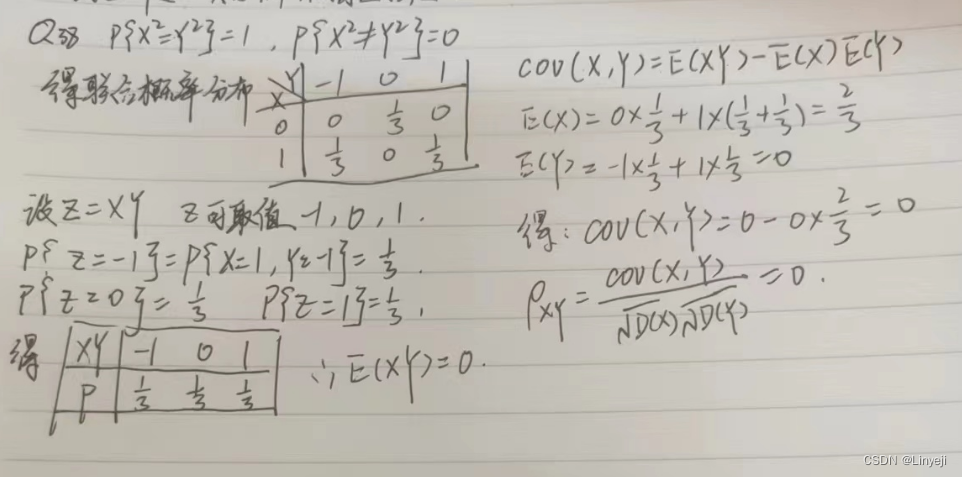 Q38 P{X²=Y²}=1, P{X²≠Y²}=0
得联合概率分布
X\Y -1 0 1
0 0 1/3 0
1 1/3 0 1/3
设Z=XY Z可取值 -1, 0, 1.
P{Z=-1}=P{X=1, Y=-1}=1/3.
P{Z=0}=1/3 P{Z=1}=1/3,
得 XY -1 0 1
P 1/3 1/3 1/3
∴ E(XY)=0.
COV(X,Y)=E(XY)-E(X)E(Y)
E(X)=0×1/3+1×(1/3+1/3)=2/3
E(Y)=-1×1/3+1×1/3=0
得: COV(X,Y)=0-0×2/3=0
ρXY=COV(X,Y)/√D(X)√D(Y)=0.
CSDN @Linyeji